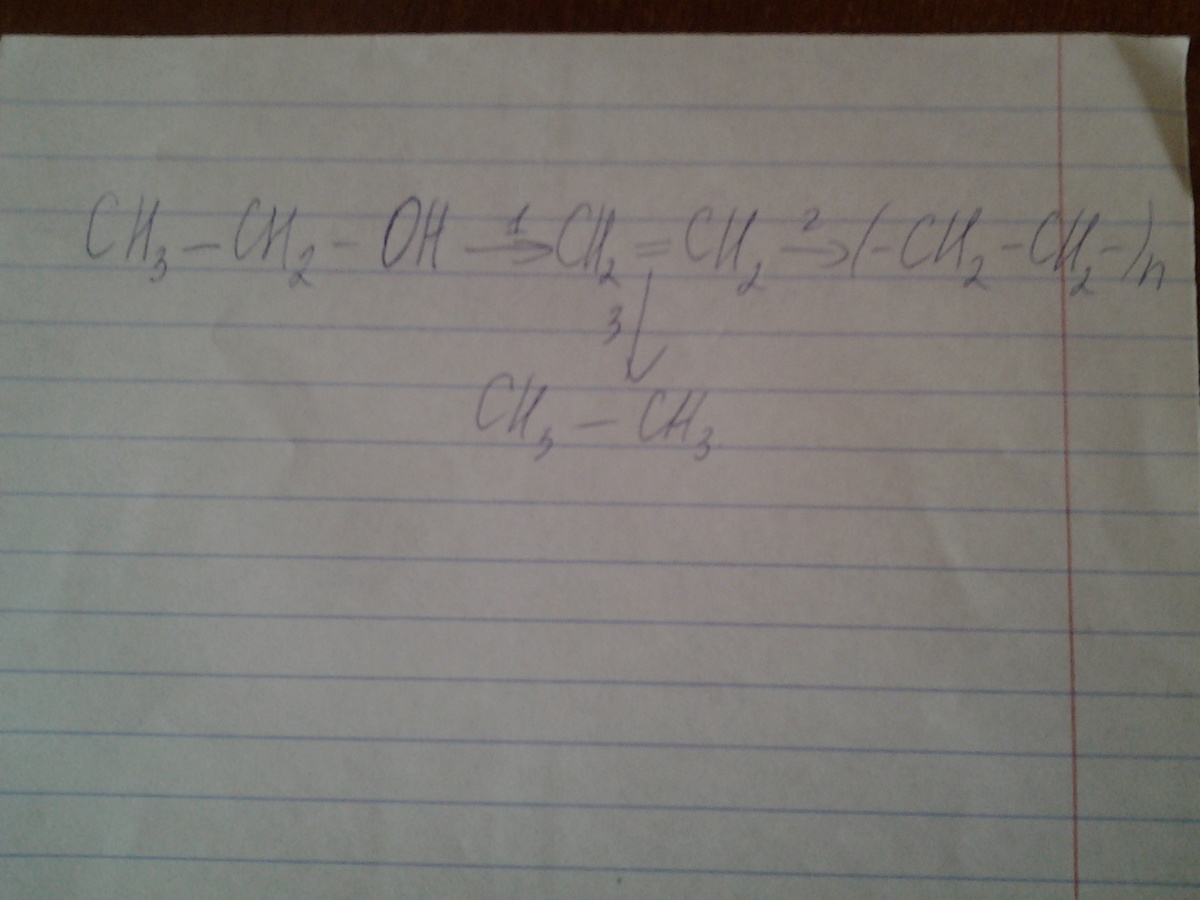 CH₃ – CH₂ – OH →¹ CH₂ = CH₂ →² (– CH₂ – CH₂ –)n
3 ↓
CH₃ – CH₃